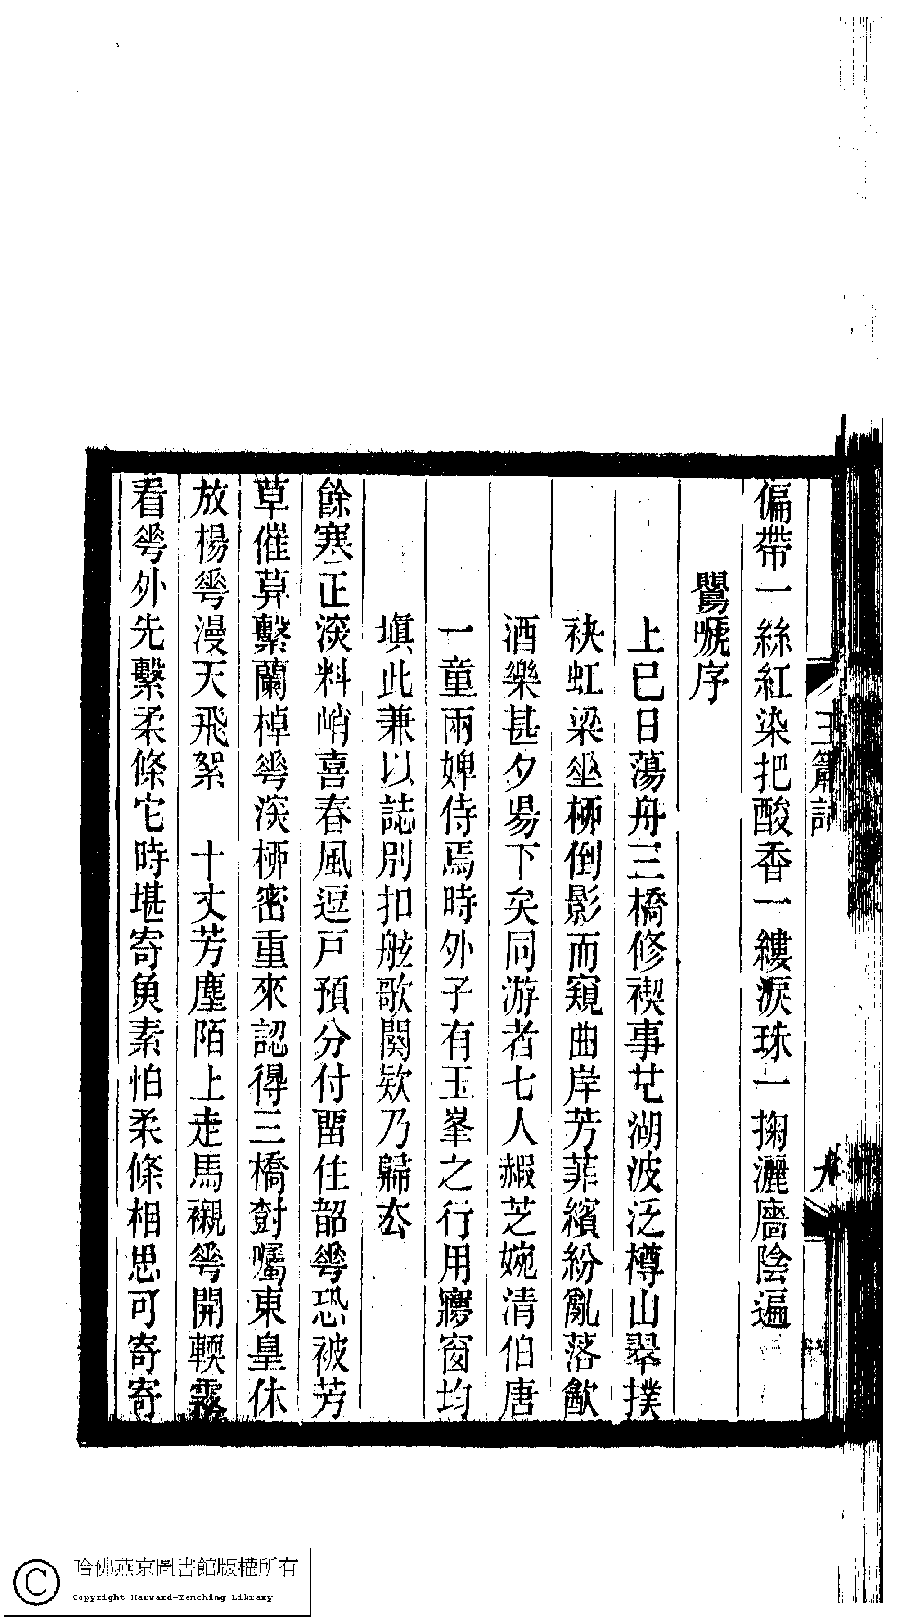 偏帶一絲紅染把酸香一縷淚珠一掬灑廧陰遍
鸎嗁序
上巳日蕩舟三橋修禊事也湖波泛樽山翠撲
袂虹梁㘴桺倒影而窺曲岸芳菲繽紛亂落歈
酒樂甚夕昜下矣同游者七人嘏芝婉清伯唐
一童兩婢侍焉時外子有玉峯之行用寱窗均
塡此兼以誌別扣舷歌闋欵乃歸去
餘寒正深料峭喜春風逗戸預分付畱住韶華恐被芳
草催莫繫蘭棹華深桺密重來認得三橋對囑東皇休
放楊華漫天飛絮　十丈芳塵陌上走馬襯華開輭霧
看華外先繫柔條它時堪寄魚素怕柔條相思可寄寄
哈佛燕京圖書館版權所有
Copyright Harvard-Yenching Library